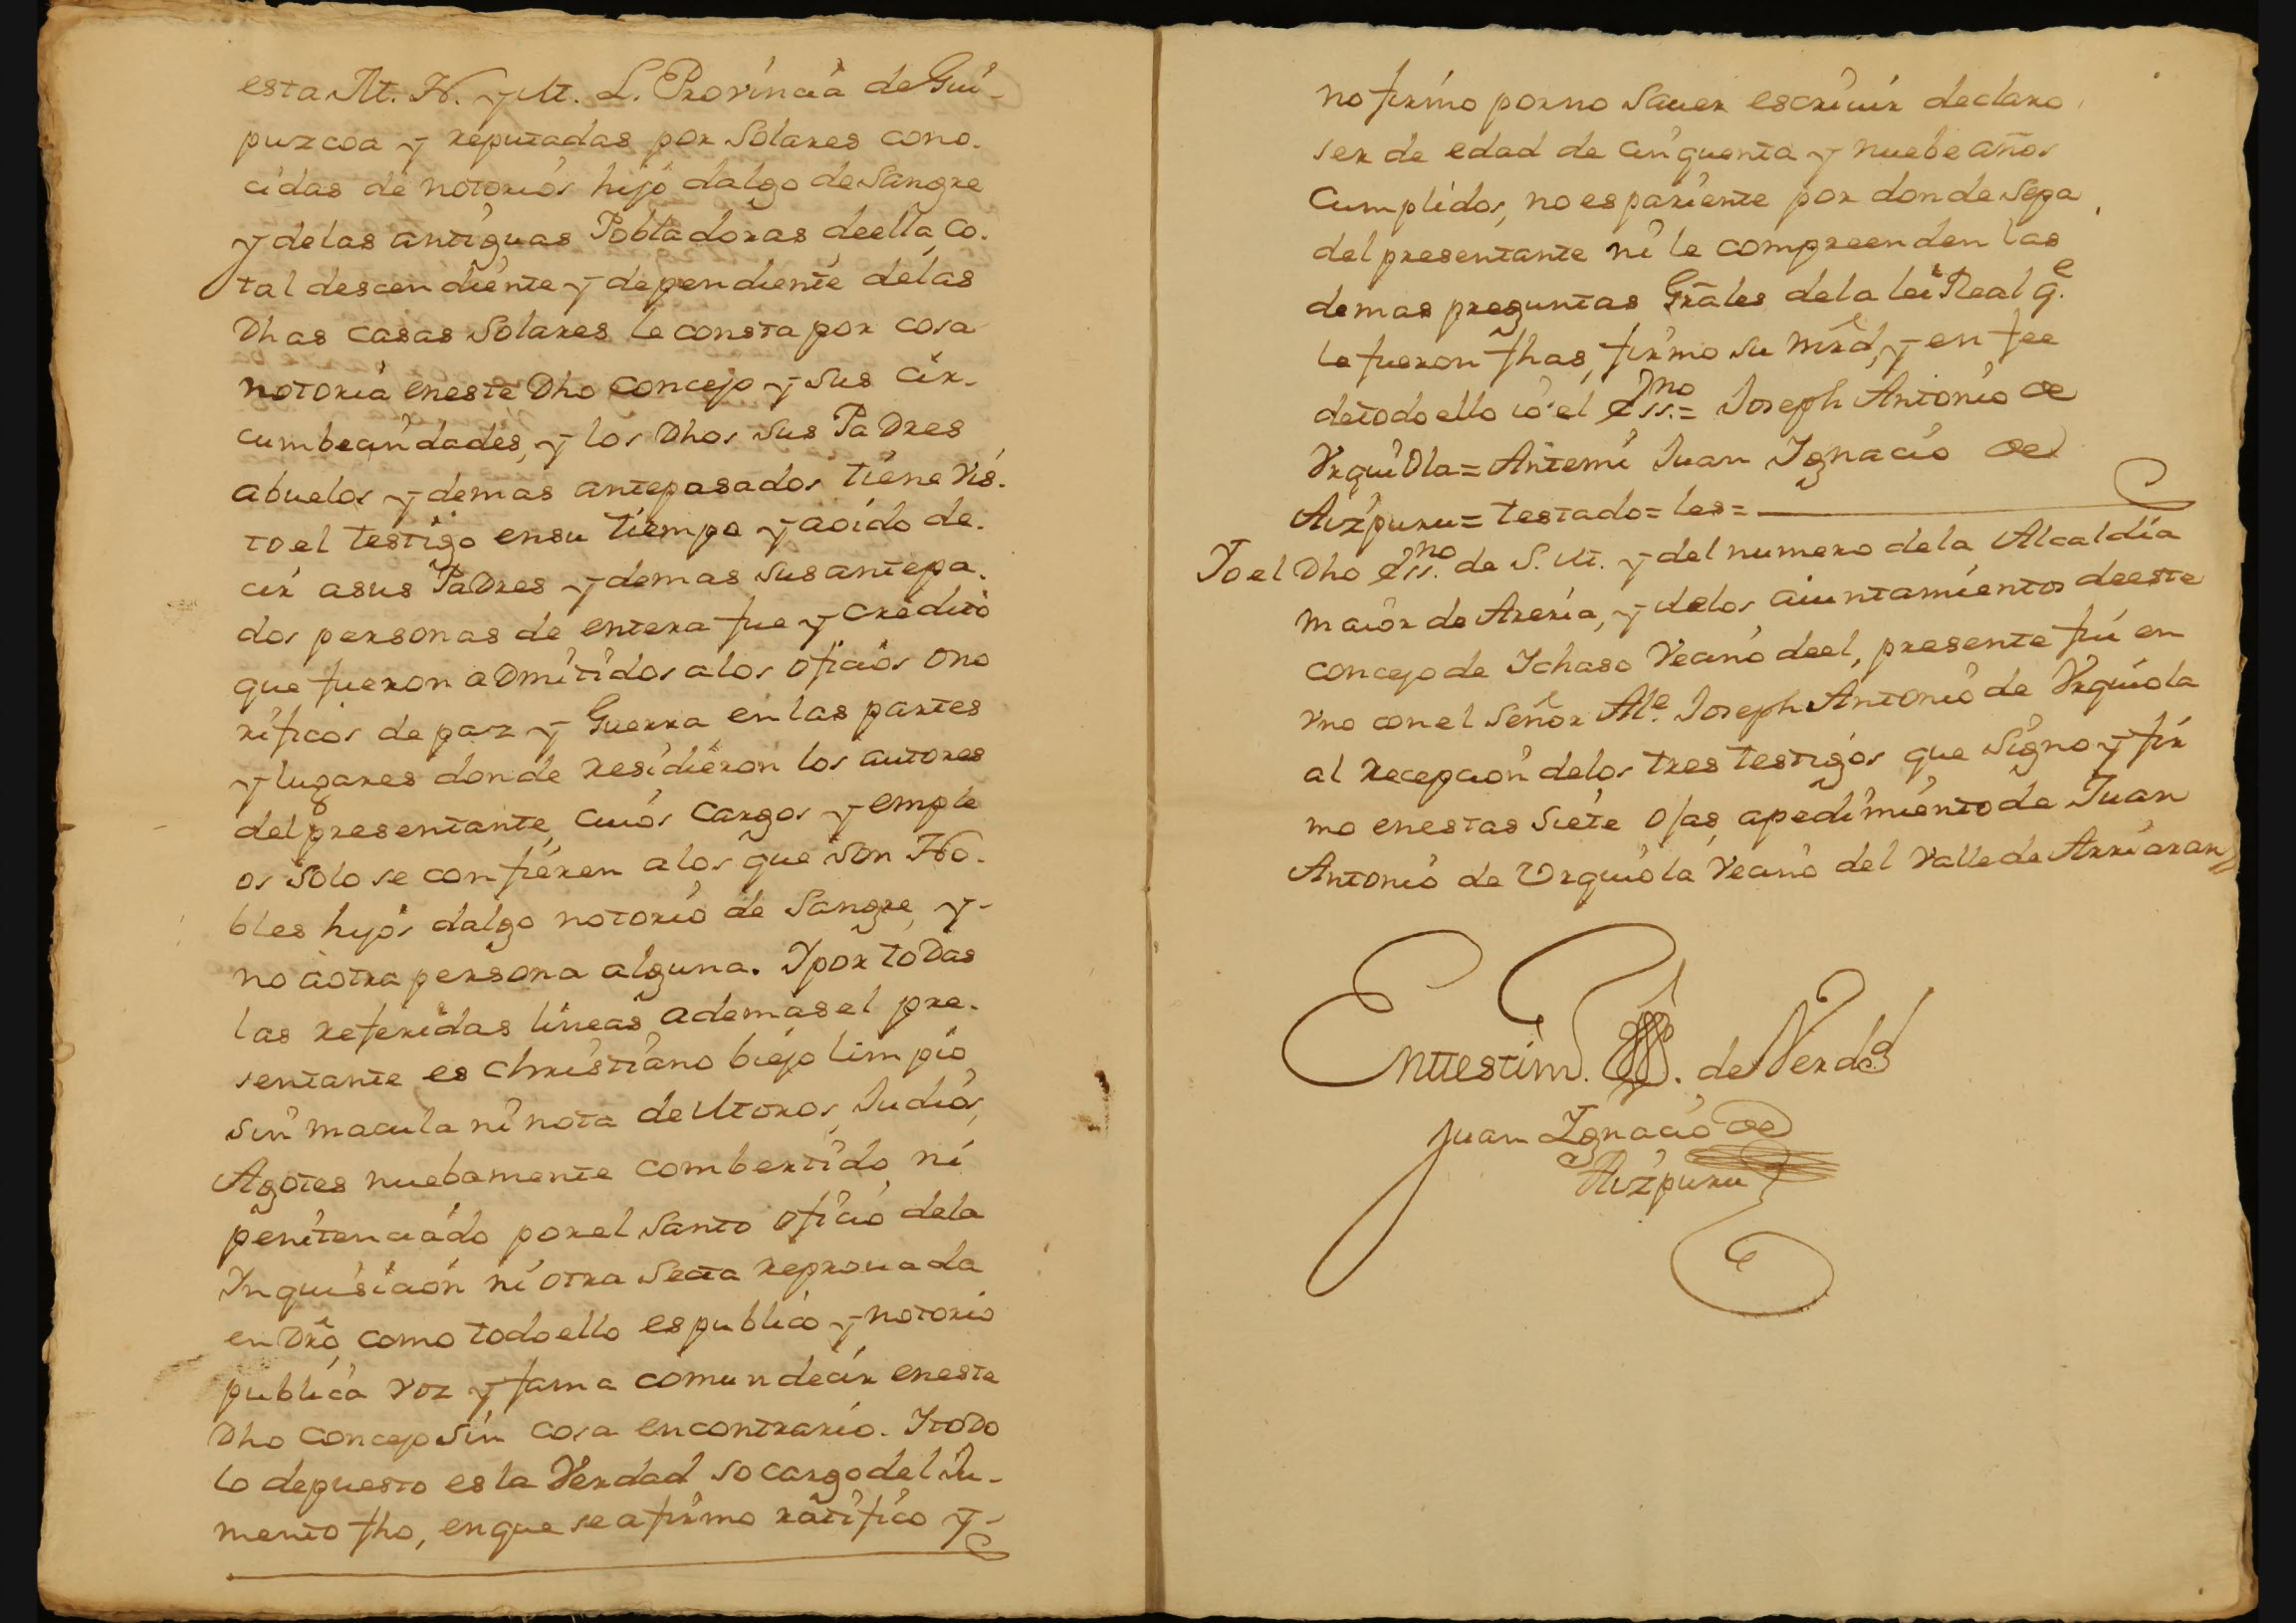 esta M. N. y M. L. Provincia de Gui-
puzcoa y reputadas por Solares cono-
cidas de notorios hijo dalgo de Sangre
y delas antiguas Pobladoras deella, Co-
tal descendiente y dependiente delas
Dhas casas Solares le consta por cosa
notoria eneste Dho concejo y sus cir-
cumbecindades, y los Dhos sus PaDres
abuelos y demas antepasados tiene Vis-
to el testigo ensu tiempo y aoido de-
cir asus PaDres y demas susantepa-
dos personas de entera fee y credito
que fueron aDmitidos alos oficios ono
rificos de paz y Guerra en las partes
y lugares donde residieron los autores
delpresentante, cuios cargos y emple
os solo se confieren alos que son No-
bles hijos dalgo notorio de Sangre, y-
no aotra persona alguna. Ypor toDas
las referidas lineas ademasel pre-
sentante es christiano biejo limpio
sin macula ni nota de Moros, Judios,
Agotes nuebamente combertido, ni
penitenciado porel Santo oficio dela
Inquisicion ni otra Secta reprouada
en Dro, como todoello espublico y notorio
publica voz y fama comun decir eneste
Dho Concejo sin cosa encontrario. YtoDo
lo depuesto es la Verdad so cargo del Ju-
mento fho, enque se afirmo ratifico y-
no firmo porno Sauer escriuir declaro
ser de edad de cinquenta y nuebe años
Cumplidos, no espariente por donde Sepa
delpresentante ni le compreenden las
demas preguntas Grales dela lei Real q.e
le fueron fhas, firmo su mrd, y en fee
detodoello io el ess.no = Joseph Antonio de
VrquiDla = Antemi Juan Ignacio de
Aizpuru = testado = les =
Yo el Dho ess.no de S. M. y del numero dela Alcaldia
maior de Areria, y delos aiuntamientos deeste
concejo de Ichaso Vecino deel, presente fui en
vno con el Señor Al.e Joseph Antonio de Vrquiola
al recepcion delos tres testigos que Signo y fir
mo enestas siete ojas apedimiento de Juan
Antonio de Vrquiola Vecino del Valle de Arriaran
Enttestim. . de Verdd
Juan Ignacio de
Aizpuru